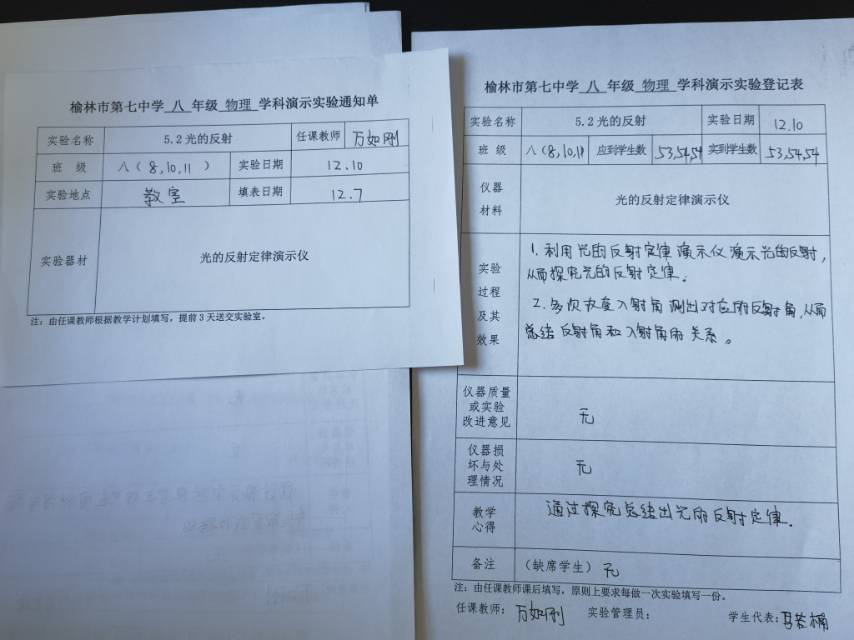 榆林市第七中学 八 年级 物理 学科演示实验通知单
实验名称 5.2光的反射 任课教师 万如刚
班 级 八(8,10,11) 实验日期 12.10
实验地点 教室 填表日期 12.7
实验器材 光的反射定律演示仪
注：由任课教师根据教学计划填写，提前3天送交实验室。
榆林市第七中学 八 年级 物理 学科演示实验登记表
实验名称 5.2光的反射 实验日期 12.10
班 级 八(8,10,11) 应到学生数 53,54,54 实到学生数 53,54,54
仪器
材料
光的反射定律演示仪
实验
过程
及其
效果
1. 利用光的反射定律演示仪演示光的反射，
从而探究光的反射定律。
2. 多次改变入射角测出对应的反射角，从而
总结反射角和入射角的关系。
仪器质量
或实验
改进意见
无
仪器损
坏与处
理情况
无
教学
心得
通过探究总结出光的反射定律.
备注 (缺席学生) 无
注：由任课教师课后填写，原则上要求每做一次实验填写一份。
任课教师：万如刚 实验管理员： 学生代表：马若楠